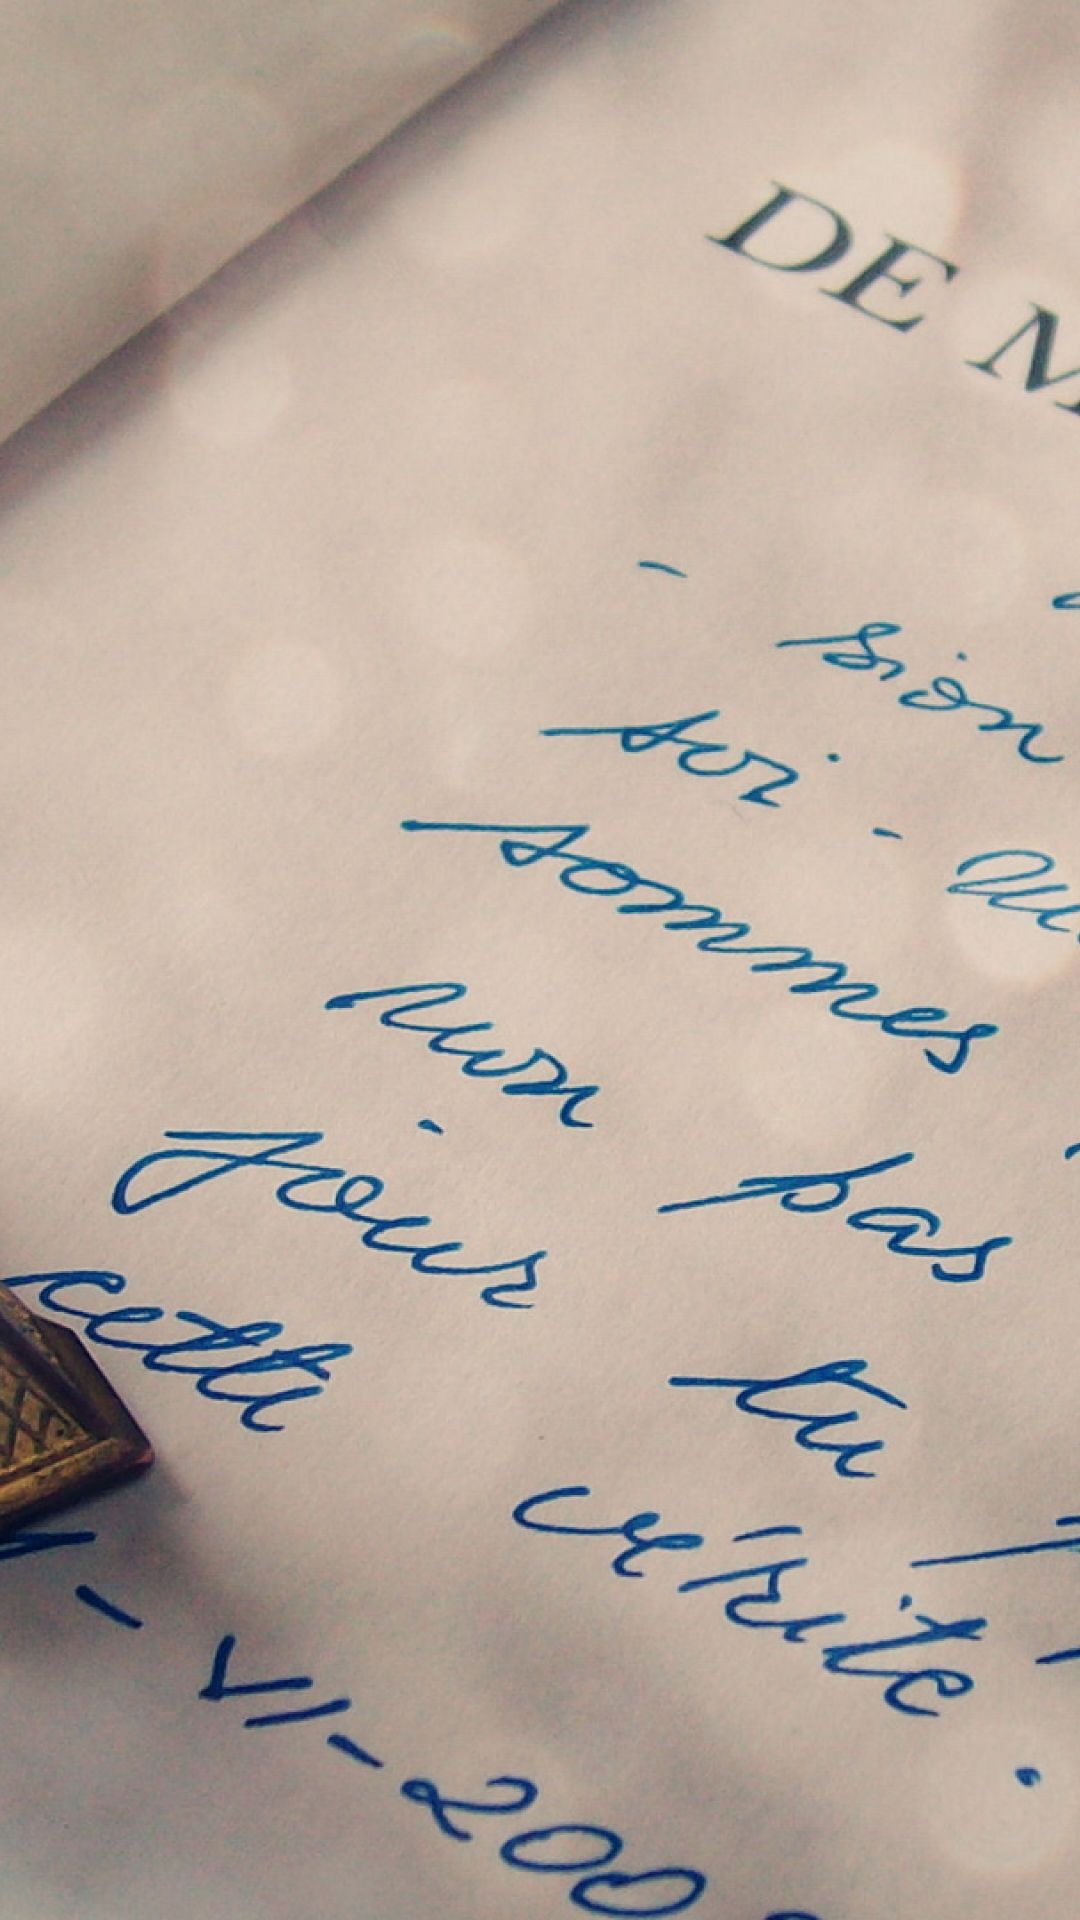 DE M
sion
soi-
sommes
mon pas
jour tu
cette vérité.
-VI-200